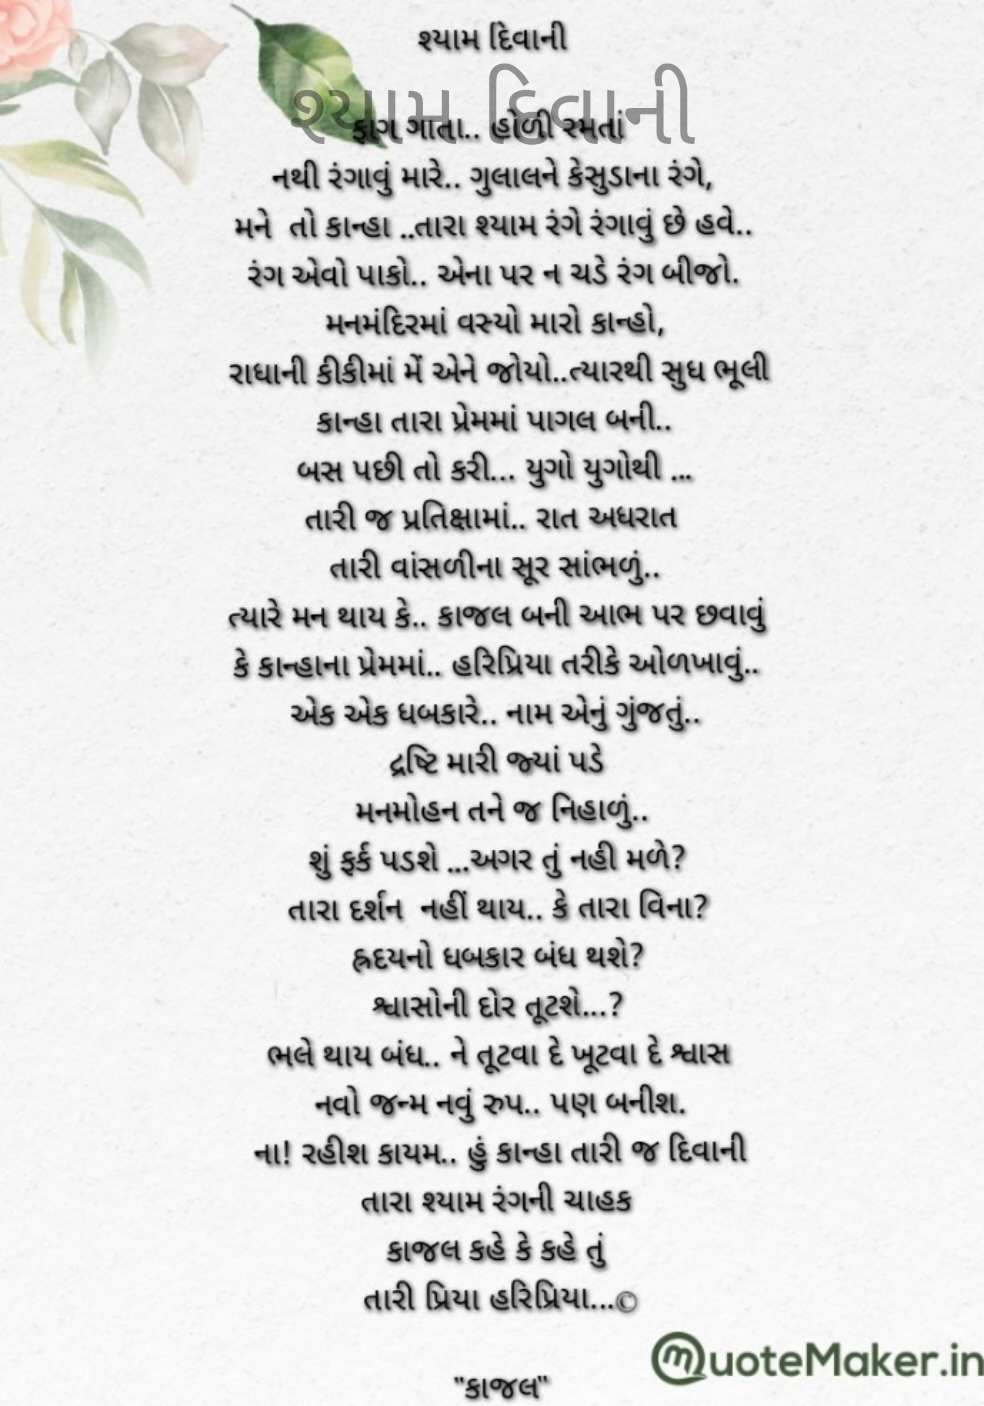 શ્યામ દિવાની
શ્યામ દિવાની
ફાગ ગાતા.. હોળી રમતાં
નથી રંગાવું મારે.. ગુલાલને કેસુડાના રંગે,
મને તો કાન્હા ..તારા શ્યામ રંગે રંગાવું છે હવે..
રંગ એવો પાકો.. એના પર ન ચડે રંગ બીજો.
મનમંદિરમાં વસ્યો મારો કાન્હો,
રાધાની કીકીમાં મેં એને જોયો..ત્યારથી સુધ ભૂલી
કાન્હા તારા પ્રેમમાં પાગલ બની..
બસ પછી તો કરી... યુગો યુગોથી ...
તારી જ પ્રતિક્ષામાં.. રાત અધરાત
તારી વાંસળીના સૂર સાંભળું..
ત્યારે મન થાય કે.. કાજલ બની આભ પર છવાવું
કે કાન્હાના પ્રેમમાં.. હરિપ્રિયા તરીકે ઓળખાવું..
એક એક ધબકારે.. નામ એનું ગુંજતું..
દ્રષ્ટિ મારી જ્યાં પડે
મનમોહન તને જ નિહાળું..
શું ફર્ક પડશે ...અગર તું નહી મળે?
તારા દર્શન નહીં થાય.. કે તારા વિના?
હ્રદયનો ધબકાર બંધ થશે?
શ્વાસોની દોર તૂટશે...?
ભલે થાય બંધ.. ને તૂટવા દે ખૂટવા દે શ્વાસ
નવો જન્મ નવું રુપ.. પણ બનીશ.
ના! રહીશ કાયમ.. હું કાન્હા તારી જ દિવાની
તારા શ્યામ રંગની ચાહક
કાજલ કહે કે કહે તું
તારી પ્રિયા હરિપ્રિયા...©
QuoteMaker.in
"કાજલ"